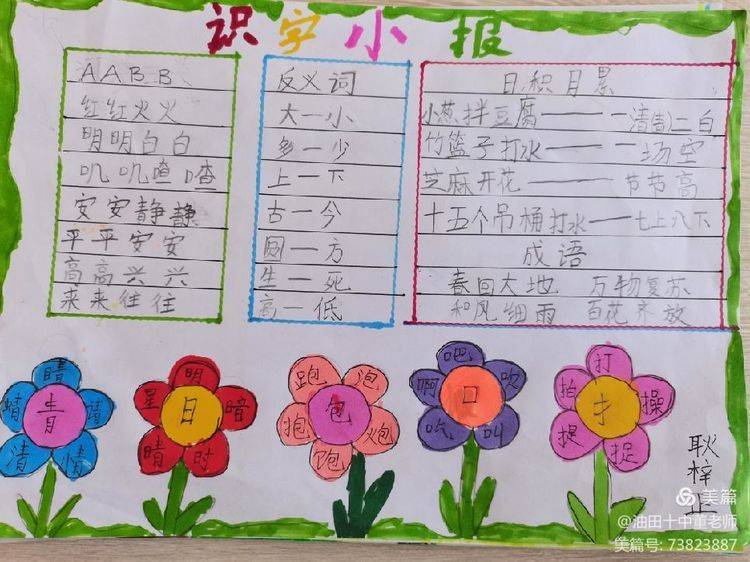 识字小报
AABB
红红火火
明明白白
叽叽喳喳
安安静静
平平安安
高高兴兴
来来往往
反义词
大一小
多一少
上一下
古一今
圆一方
生一死
高一低
日积月累
小葱拌豆腐——一清二白
竹篮子打水——一场空
芝麻开花——节节高
十五个吊桶打水——七上八下
成语
春回大地 万物复苏
和风细雨 百花齐放
青
晴
蜻
清
情
日
明
星
暗
晴
时
包
跑
泡
抱
炮
饱
口
吧
啊
吹
吃
叫
扌
打
拍
操
提
捉
耿梓
美篇
@油田十中董老师
美篇号: 73823887